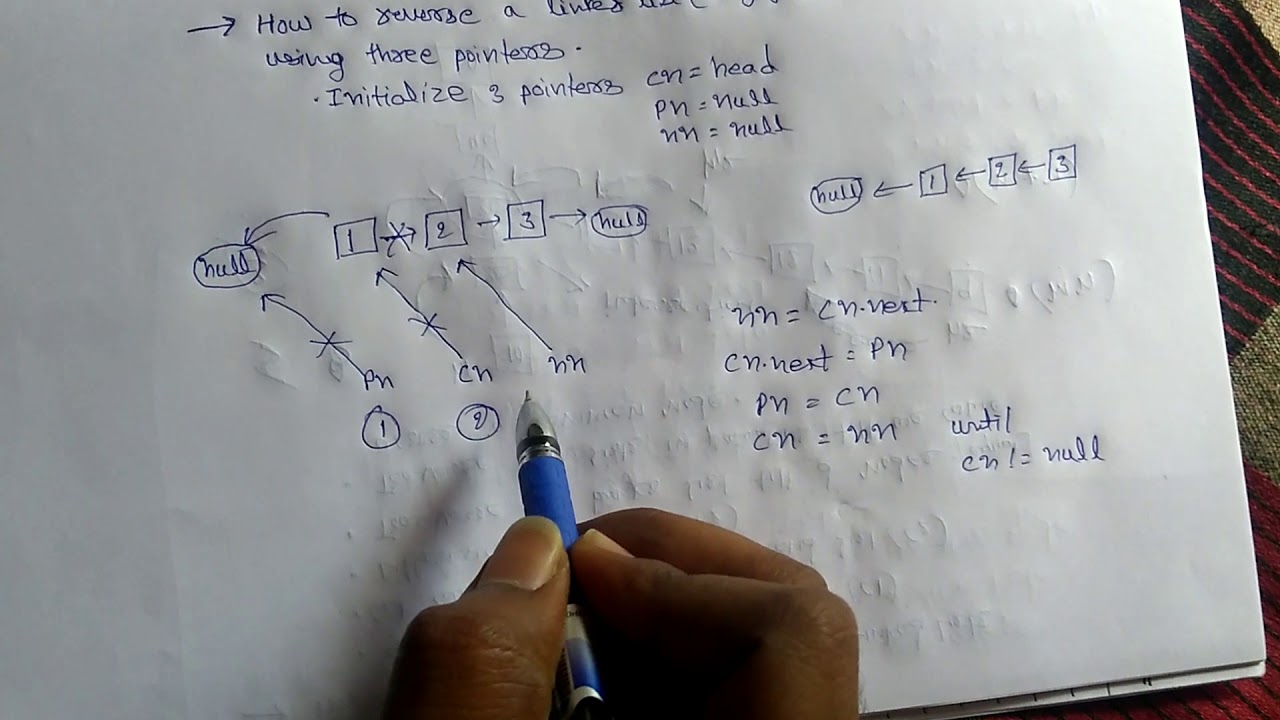 → How to reverse a
using three pointers.
· Initialize 3 pointers cn = head
pn = null
nn = null
null ← 1 ← 2 ← 3
1 → 2 → 3 → null
null
nn = cn.next.
cn.next = pn
pn cn nn
pn = cn
1 2
cn = nn until
cn != null